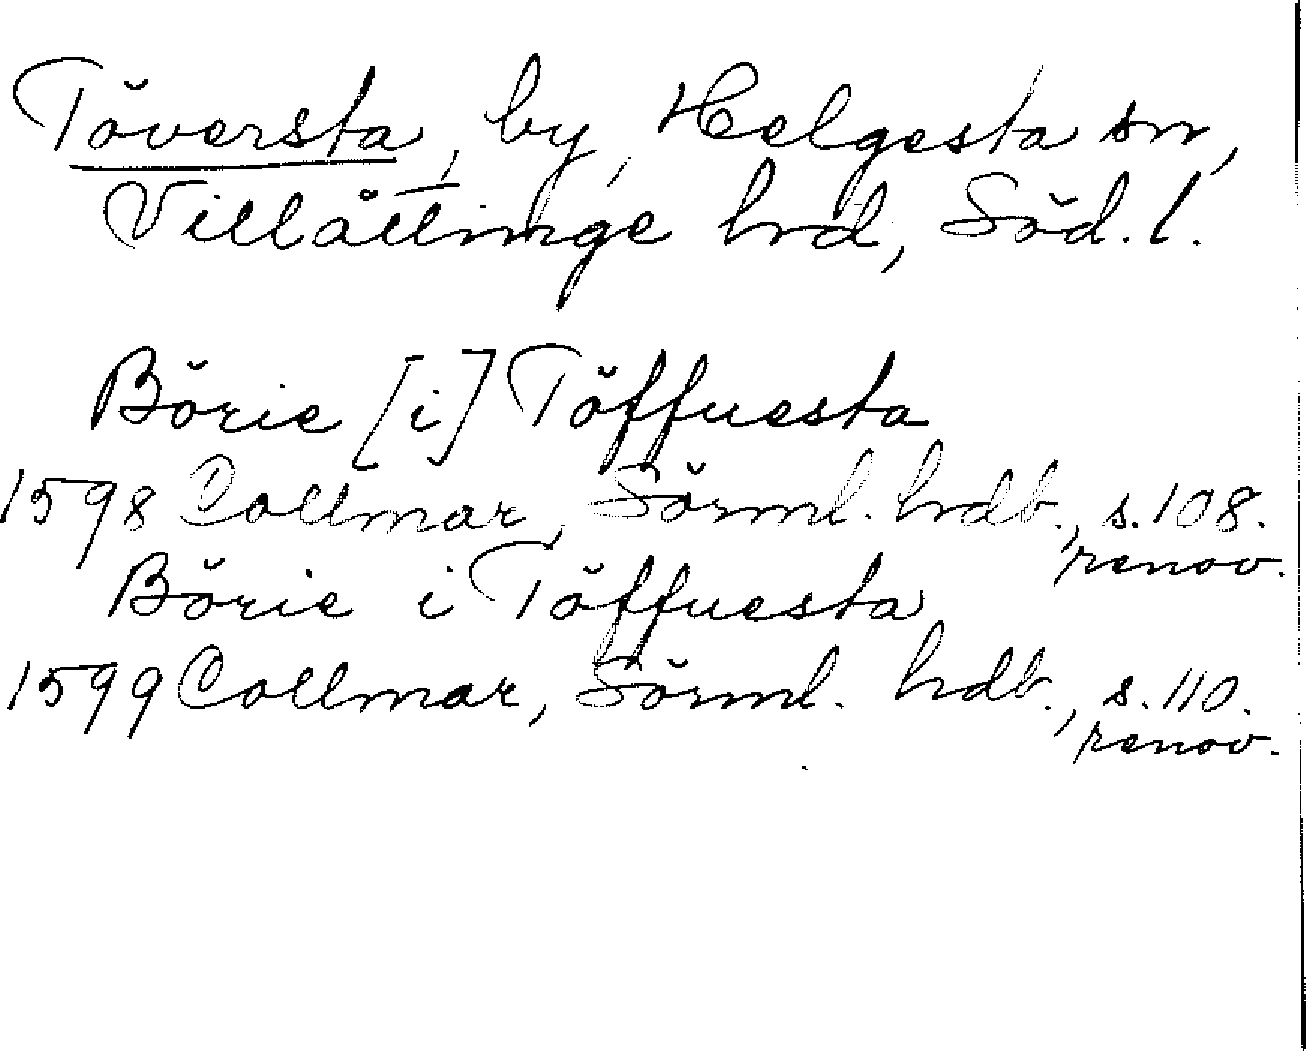 Töversta, by, Helgesta sn,
Villåttinge hrd, Söd. l.
Börie [i] Töffuesta
1598 Collmar, Sörml. hrdb., s. 108.
renov.
Börie i Töffuesta
1599 Collmar, Sörml. hrdb., s. 110.
renov.